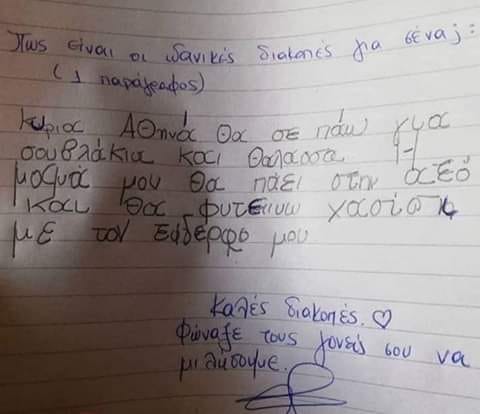 Πως είναι οι ιδανικές διακοπές για σένα; :
(1 παράγραφος)
Κυρια Αθηνά θα σε πάω για
σουβλάκια και θαλασσα Η
μου θα πάει στην
και θα
με τον μου
Καλές διακοπές. ♡
Φώναξε τους γονείς σου να
μιλήσουμε.